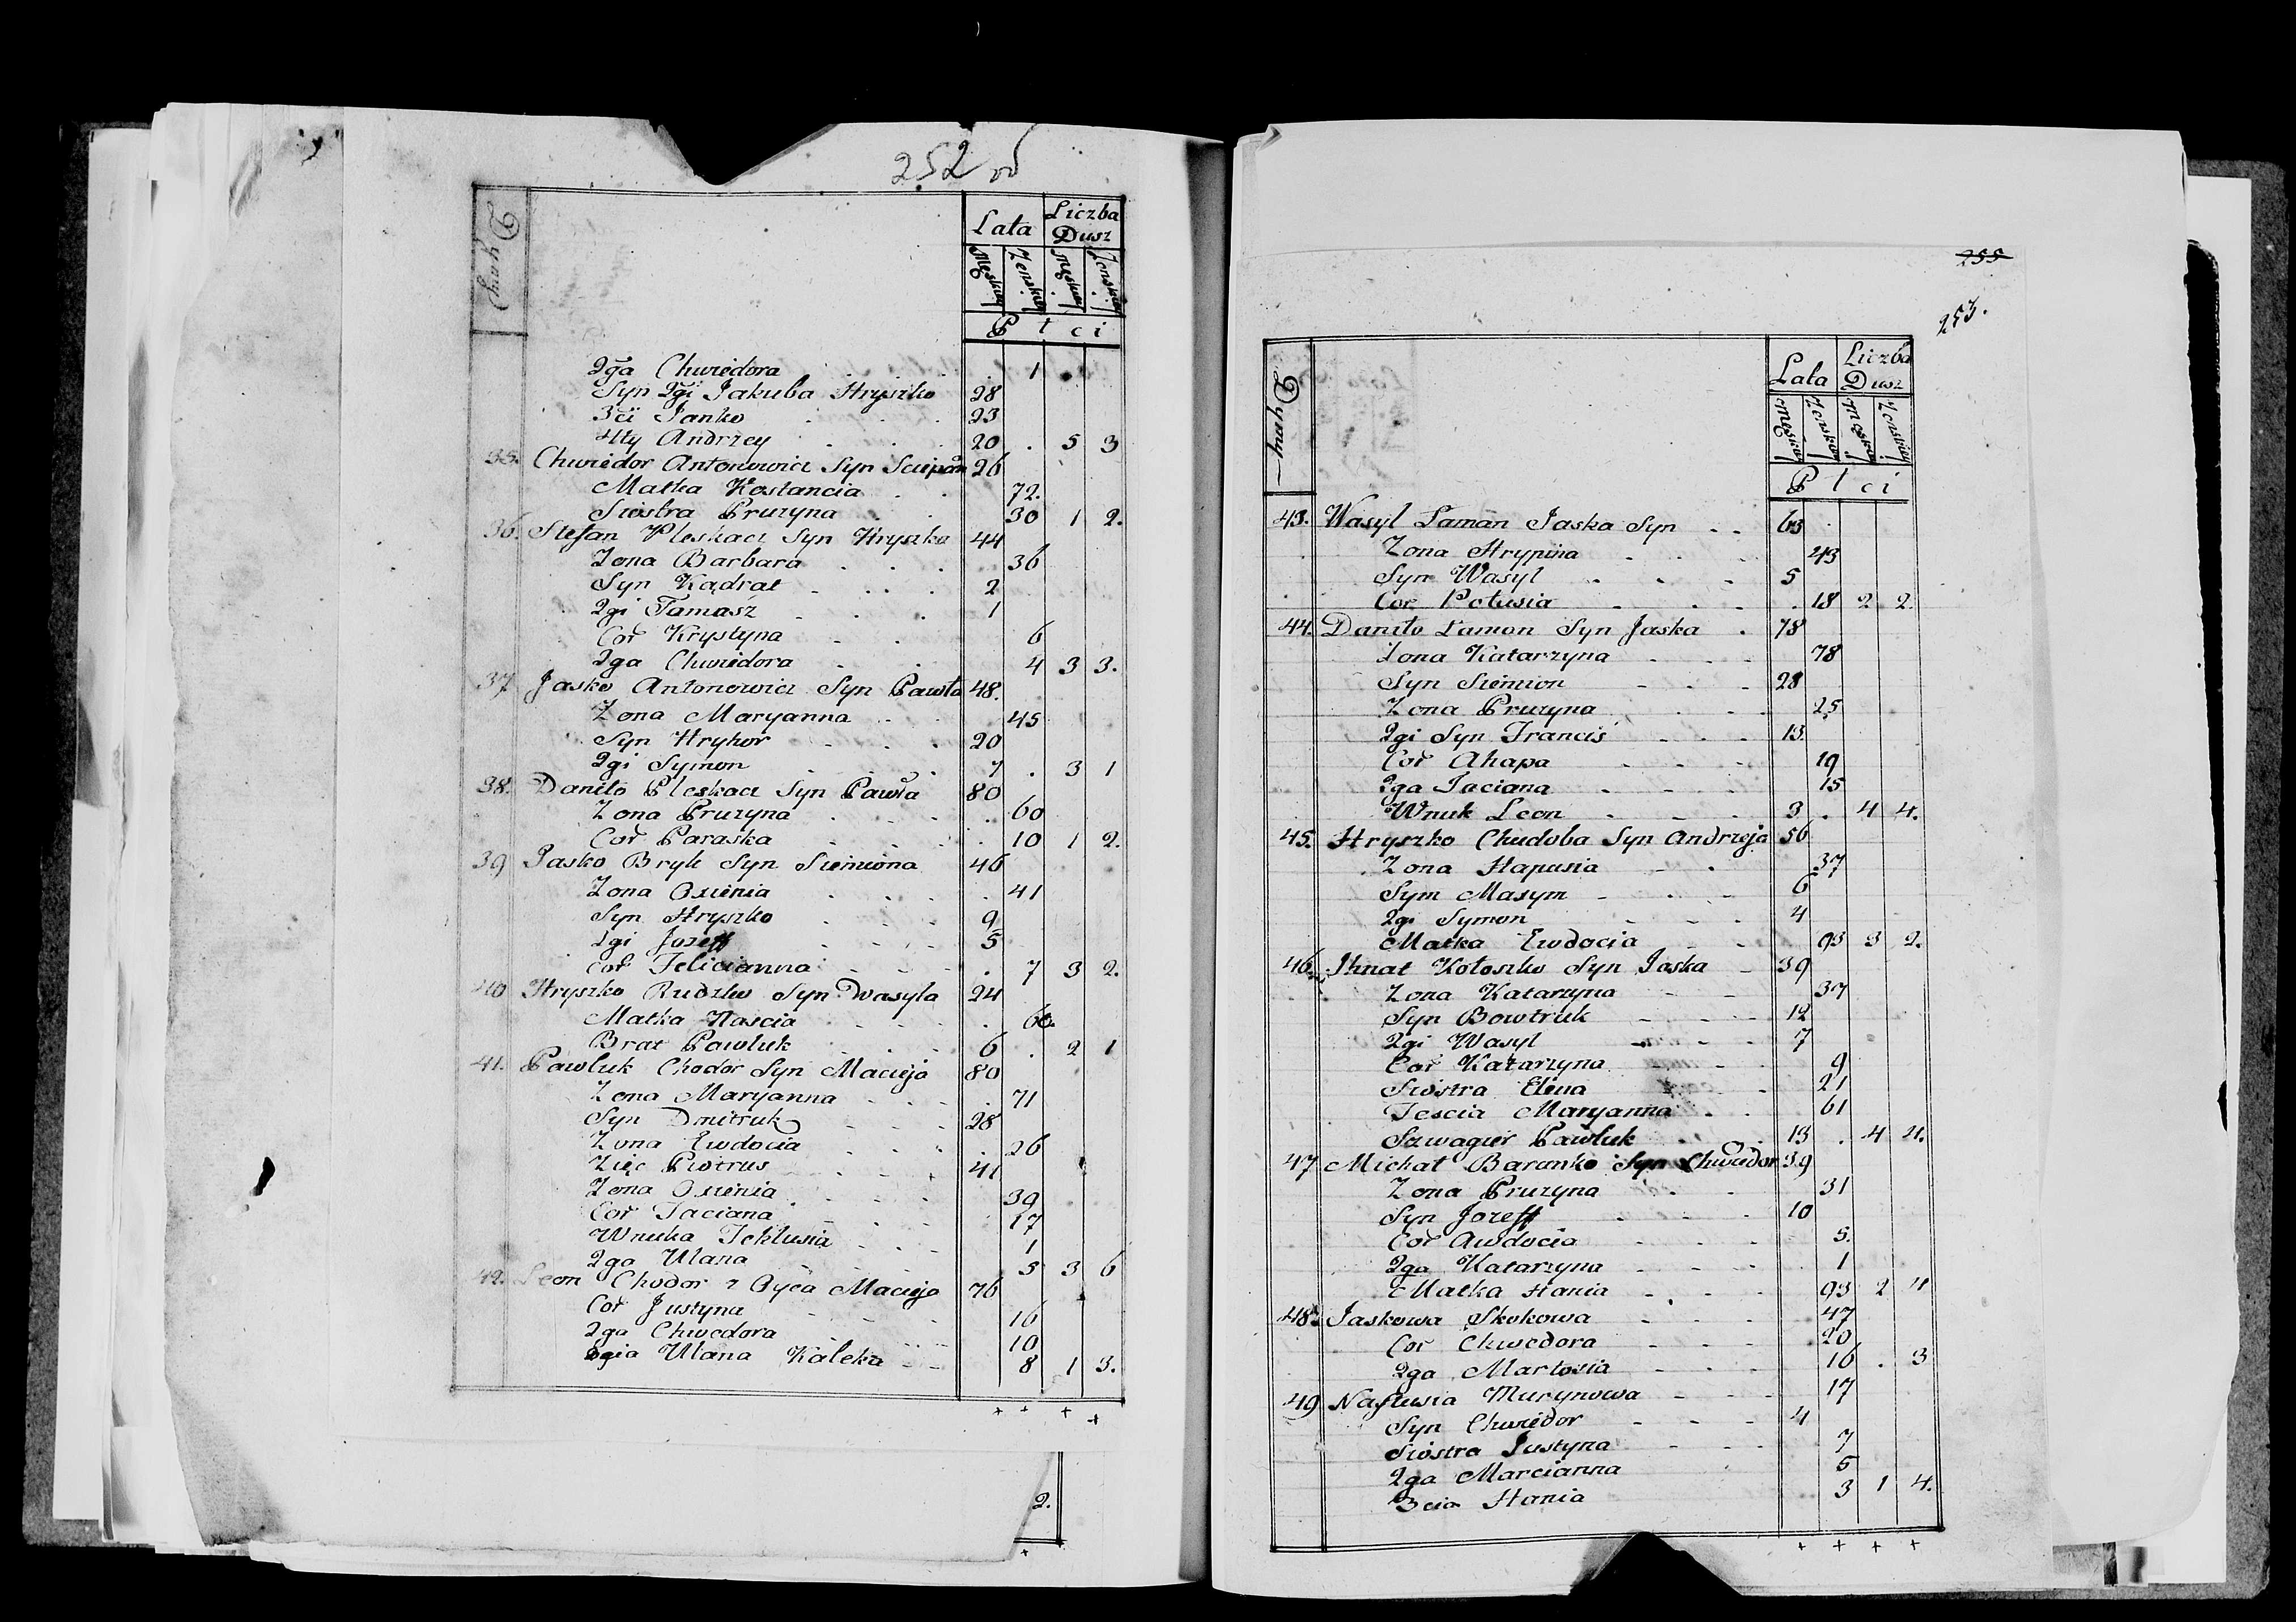 252 об
Dymy
Lata Liczba Dusz
Męskiey Żenskiey Męskiey Żenskiey
Płci
2ga Chwiedora . . . . 1
Syn 2gi Jakuba Hryszko 28
3ci Janko . . . 23
4ty Andrzey . . . 20 . 5 3
35. Chwiedor Antonowicz Syn Sciepan 26
Matka Kostancia . . 72.
Siostra Pruzyna . . 30 1 2.
36. Stefan Pleskacz Syn Hryszka 44
Zona Barbara . . . 36
Syn Kądrat . . . . 2
2gi Tamasz . . . . 1
Cor Krystyna . . 6
2ga Chwiedora . . 4 3 3.
37 Jasko Antonowicz Syn Pawła 48.
Zona Maryanna . . 45
Syn Hryhor . . . 20
2gi Symon . . . 7 . 3 1
38. Daniło Pleskacz Syn Pawła 80
Zona Pruzyna . . . . 60
Cor Paraska . . . . 10 1 2.
39 Jasko Bryk Syn Siemiona 46
Zona Oxienia . . . . 41
Syn Hryszko . . . 9
2gi Jozeff . . . . 5
Cor Felicianna . . . . 7 3 2.
40 Hryszko Rudzko Syn Wasyla 24
Matka Nascia . . . . 60.
Brat Pawluk . . . 6 . 2 1
41. Pawluk Chodor Syn Macieja 80
Zona Maryanna . . . . 71
Syn Dmitruk . . . 28
Zona Ewdocia . . . . 26
Zięc Piotrus . . . 41
Zona Oxienia . . . . 39
Cor Taciana . . . 17
Wnuka Teklusia . . . 1
2ga Ulana . . . 5 3 6
42. Leon Chodor z Oyca Macieja 76
Cor Justyna . . . 16
2ga Chwedora . . . 10
3cia Ulana Kaleka . . 8 1 3.
+ + + +
2.
+
255
253.
Dymy
Lata Liczba Dusz
Męskiey Żenskiey Męskiey Żenskiey
Płci
43. Wasyl Laman Jaska Syn . . 63
Zona Hrypina . . . 43
Syn Wasyl . . . 5
Cor Polusia . . . . 18 2 2.
44. Daniło Lamon Syn Jaska . 78
Zona Katarzyna . . . 78
Syn Siemion . . . 28
Zona Pruzyna . . . 25
2gi Syn Francis . . . 13.
Cor Ahapa . . . 19
2ga Taciana . . . 15
Wnuk Leon . . . 3 . 4 4.
45. Hryszko Chudoba Syn Andrzeja 56
Zona Hapusia . . 37
Sym Masym . . . 6
2gi Symon . . . 4
Matka Ewdocia . . 93 3 2.
46. Ihnat Kołoszko Syn Jaska . 39
Zona Katarzyna . . 37
Syn Bowtruk . . . 12
2gi Wasyl . . . 7
Cor Katarzyna . . 9
Siostra Elena . . 21
Tescia Maryanna . . 61
Szwagier Pawluk . . 13 . 4 4.
47 Michał Baranko Syn Chwiedor 39
Zona Pruzyna . . 31
Syn Jozeff . . . 10
Cor Awdocia . . . 5.
2ga Katarzyna . . . 1
Matka Hania . . . 93 2 4
48. Jaskowa Skokowa . . . 47
Cor Chwedora . . . 20
2ga Martosia . . . 16 . 3
49 Nastusia Murynowa . . . 17
Syn Chwiedor . . . 4
Siostra Justyna . . . 7
2ga Marcianna 5
3cia Hania 3 1 4.
+ + + +